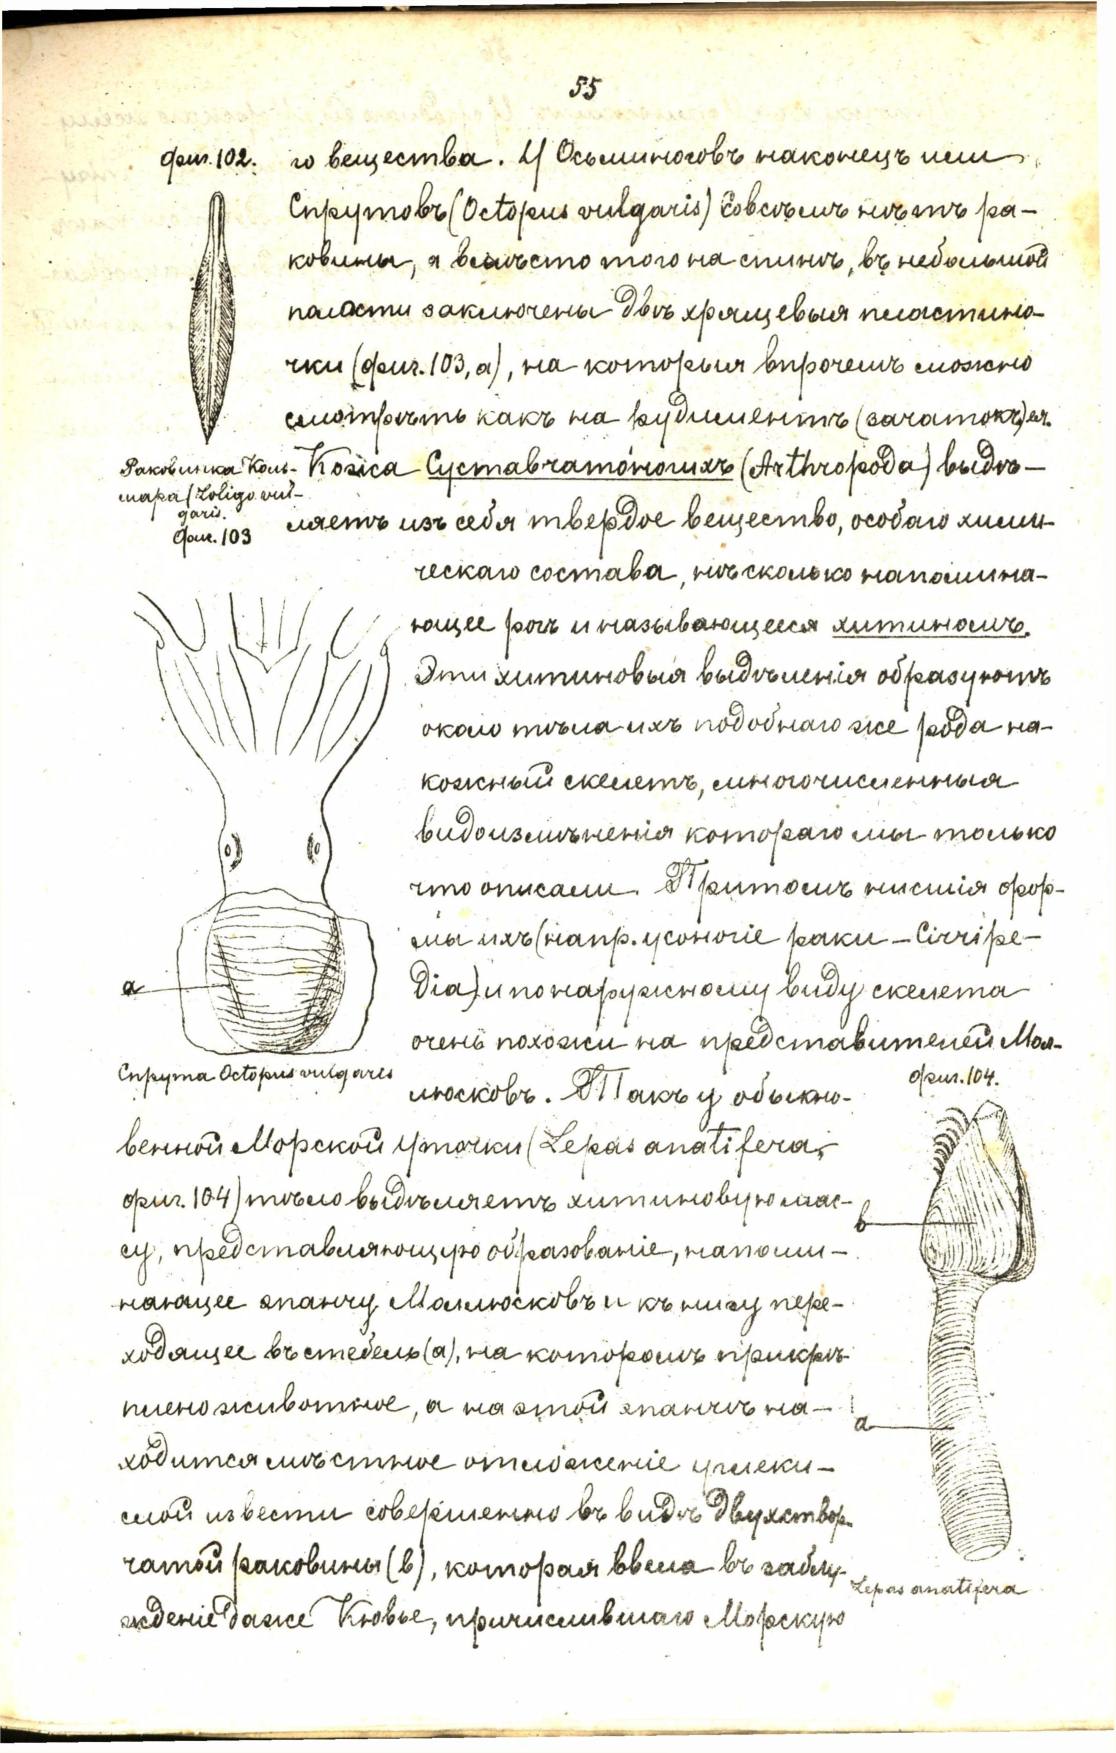 55
фиг. 102.
го вещества. У Осьминоговъ наконецъ или
Спрутовъ (Octopus vulgaris) совсѣмъ нѣтъ ра-
ковины, а вмѣсто того на спинѣ, въ небольшой
полости заключены двѣ хрящевыя пластино-
чки (фиг. 103, а), на которыя впрочемъ можно
смотрѣть какъ на рудиментъ (зачатокъ) ея.
Раковинка Каль-
мара (Loligo vul-
garis.
Фиг. 103
Кожа Суставчатоногихъ (Arthropoda) выдѣ-
ляетъ изъ себя твердое вещество, особаго хими-
ческаго состава, нѣсколько напомина-
ющее рогъ и называющееся хитиномъ.
Эти хитиновыя выдѣленія образуютъ
около тѣла ихъ подобнаго же рода на-
кожный скелетъ, многочисленныя
видоизмѣненія котораго мы только
что описали. Притомъ нисшія фор-
мы ихъ (напр. усоногіе раки – Cirripe-
dia) и по наружному виду скелета
очень похожи на представителей Мол-
люсковъ. Такъ у обыкно-
а
Спрута Octopus vulgares
фиг. 104.
венной Морской Уточки (Lepas anatifera,
фиг. 104) тѣло выдѣляетъ хитиновую мас-
су, представляющую образованіе, напоми-
нающее эпанчу Моллюсковъ и къ низу пере-
ходящее въ стебель (а), на которомъ прикрѣ-
плено животное, а на этой эпанчѣ на-
ходится мѣстное отложеніе углеки-
слой извести совершенно въ видѣ двухствор-
чатой раковины (в), которая ввела въ заблу-
жденіе даже Кювье, причислившаго Морскую
в
а
Lepas anatifera